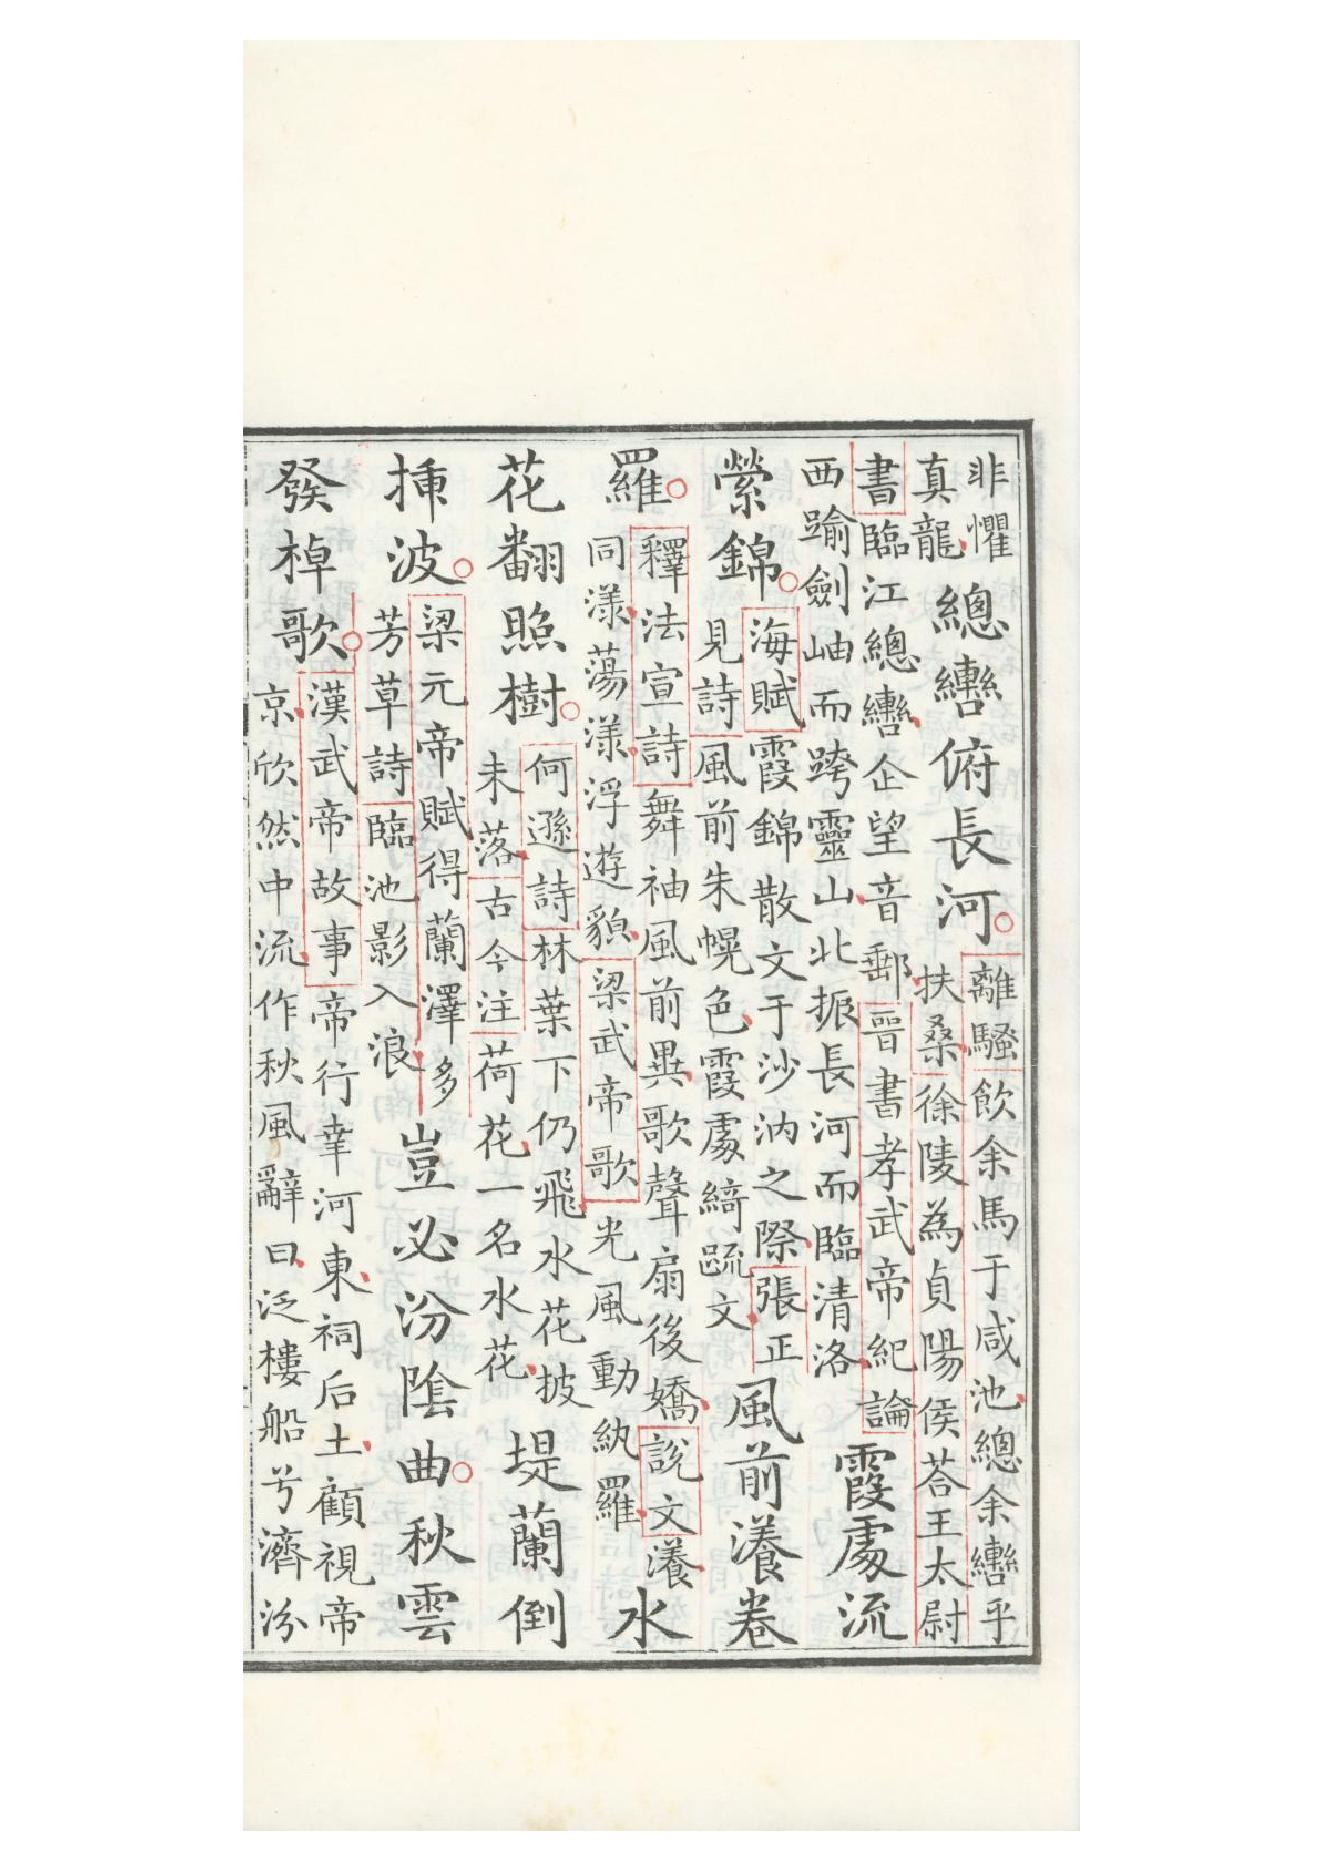 非懼
真龍
總轡俯長河
離騷飲余馬于咸池總余轡乎
扶桑徐陵為貞陽侯荅王太尉
書臨江總轡企望音郵晉書孝武帝紀論
西踰劍岫而跨靈山北振長河而臨清洛
霞處流
縈錦
海賦霞錦散文于沙汭之際張正
見詩風前朱幌色霞處綺疏文
風前瀁卷
羅
釋法宣詩舞袖風前異歌聲扇後嬌說文瀁
同漾蕩漾浮遊貌梁武帝歌光風動紈羅
水
花翻照樹
何遜詩林葉下仍飛水花披
未落古今注荷花一名水花
堤蘭倒
揷波
梁元帝賦得蘭澤多
芳草詩臨池影入浪
豈必汾陰曲秋雲
發棹歌
漢武帝故事帝行幸河東祠后土顧視帝
京欣然中流作秋風辭曰泛樓船兮濟汾